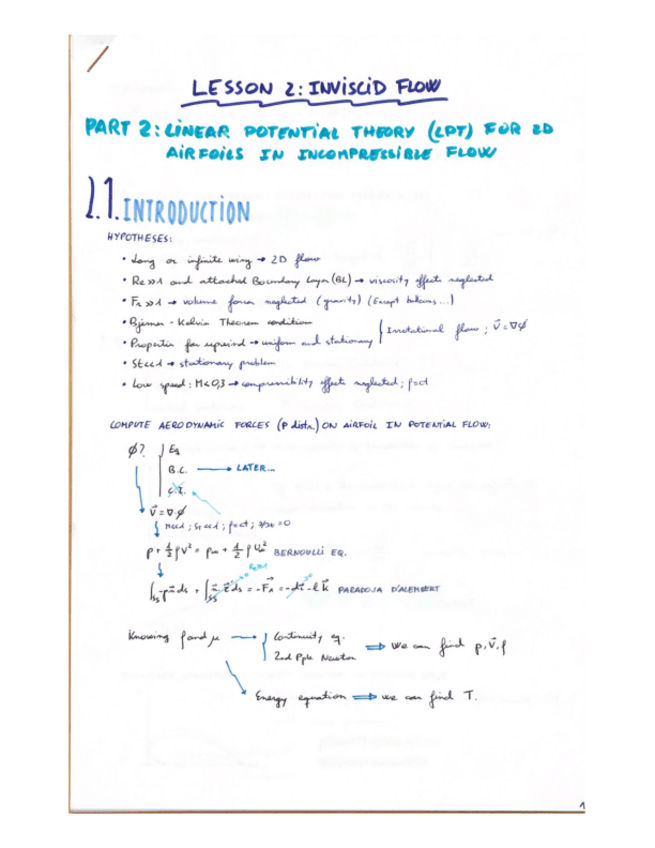 LESSON 2: INVISCID FLOW
PART 2: LINEAR POTENTIAL THEORY (LPT) FOR 2D
AIRFOILS IN INCOMPRESSIBLE FLOW
2.1. INTRODUCTION
HYPOTHESES:
• Long or infinite wing → 2D flow
• Re>>1 and attached Boundary Layer (BL) → viscosity effects neglected
• Fr>>1 → volume forces neglected (gravity) (Except balloons...)
• Bjerness - Kelvin Theorem condition
• Properties far upwind → uniform and stationary } Irrotational flow ; V⃗ = ∇Φ
• Steed → stationary problem
• Low speed: M<0,3 → compressibility effects neglected ; ρ=ct
COMPUTE AERODYNAMIC FORCES (P distr.) ON AIRFOIL IN POTENTIAL FLOW:
Φ? Eq
B.C. → LATER...
C.I.
V⃗ = ∇·Φ
; ρ=ct ;
P + ½ρV² = P∞ + ½ρU∞² BERNOULLI EQ.
PARADOJA D'ALEMBERT
Knowing ρ and μ → Continuity eq.
2nd Pple Newton ⇒ We can find p, V⃗, ρ
Energy equation ⇒ we can find T.
1